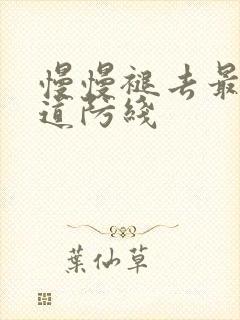 慢慢褪去最
道防綫
葉仙草